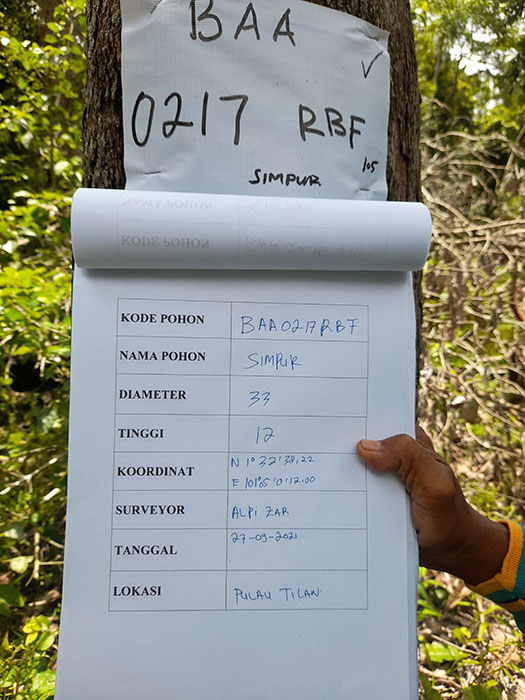 BAA
0217 RBF
SIMPUR 105
KODE POHON BAA0217RBF
NAMA POHON SIMPUR
DIAMETER 33
TINGGI 12
KOORDINAT N 1° 32' 38,22
E 101°05'0'12.00
SURVEYOR ALPI ZAR
TANGGAL 27-09-2021
LOKASI PULAU TILAN